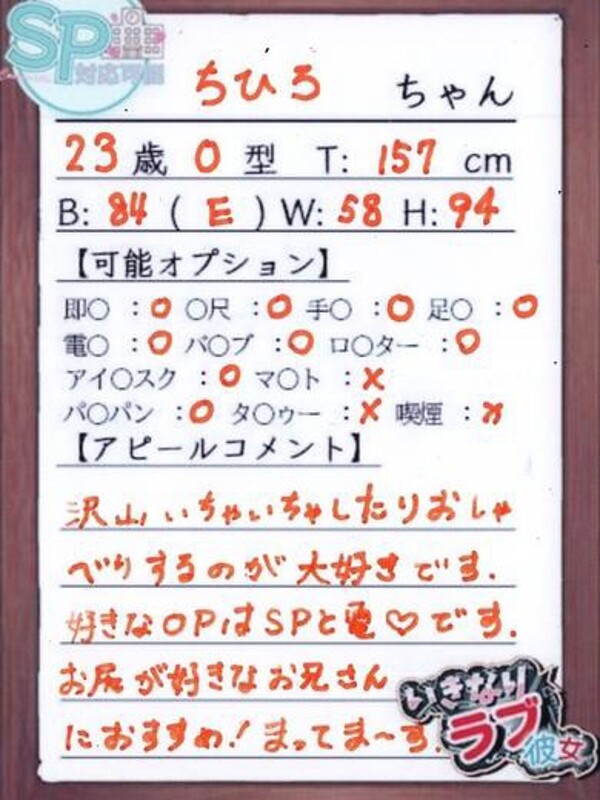 SP
対応可能
ちひろ ちゃん
23歳 O 型 T: 157 cm
B: 84 ( E ) W: 58 H: 94
【可能オプション】
即○ :○ ○尺 :○ 手○ :○ 足○ :○
電○ :○ バ○ブ :○ ロ○ター :○
アイ○スク :○ マ○ト :×
パ○パン :○ タ○ゥー :× 喫煙 :×
【アピールコメント】
沢山いちゃいちゃしたりおしゃ
べりするのが大好きです.
好きなOPはSPと電♡です.
お尻が好きなお兄さん
におすすめ!まってま〜す.
いきなり
ラブ彼女